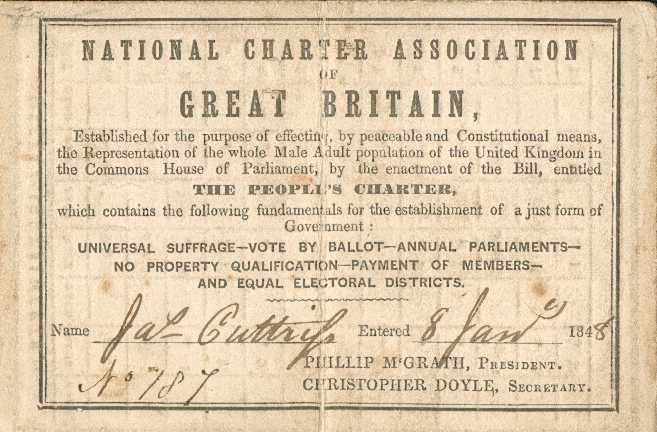 NATIONAL CHARTER ASSOCIATION
OF
GREAT BRITAIN,
Established for the purpose of effecting, by peaceable and Constitutional means,
the Representation of the whole Male Adult population of the United Kingdom in
the Commons House of Parliament, by the enactment of the Bill, entitled
THE PEOPLE'S CHARTER,
which contains the following fundamentals for the establishment of a just form of
Government:
UNIVERSAL SUFFRAGE—VOTE BY BALLOT—ANNUAL PARLIAMENTS—
NO PROPERTY QUALIFICATION—PAYMENT OF MEMBERS—
AND EQUAL ELECTORAL DISTRICTS.
Name Entered 8 Jany 1848
PHILLIP McGRATH, PRESIDENT.
No 787 CHRISTOPHER DOYLE, SECRETARY.